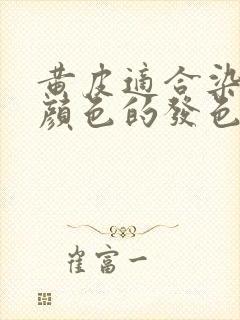 黃皮適合染
顏色的發色
崔富一